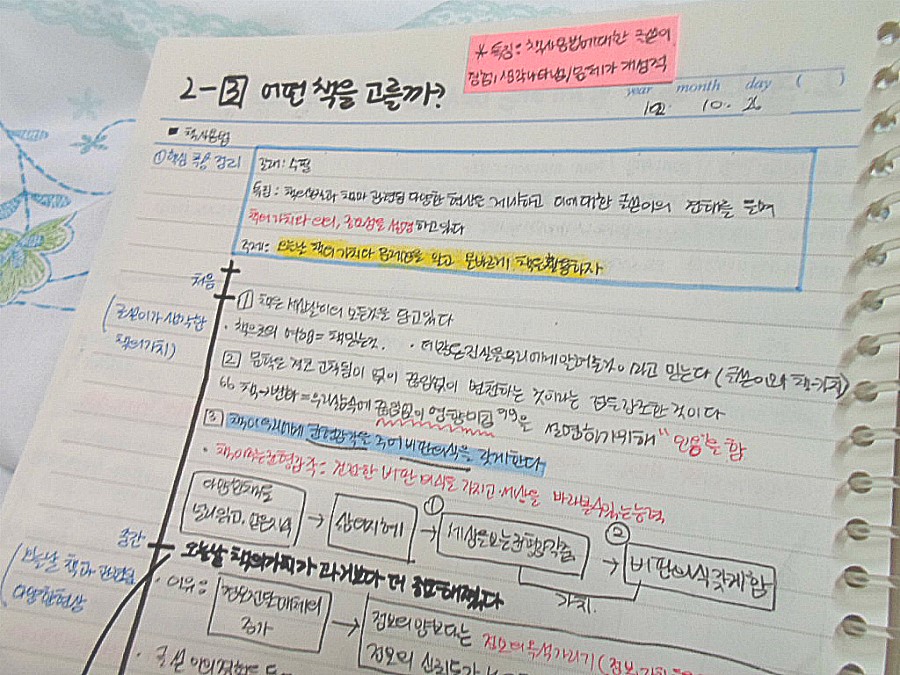 * 특징: 책사용법에 대한 글쓴이
경험, 생각 나타남, 문체가 개성적
2-3 어떤 책을 고를까?
year month day ( )
10. 26
■ 책사용법
① 핵심 내용 정리
갈래: 수필
특징: 책의 가치와 책과 관련된 다양한 현상을 제시하고 이에 대한 글쓴이의 견해를 들며
책의 가치와 의의, 중요성을 설명하고 있다
주제: 오늘날 책의 가치와 문제점을 알고 올바르게 책을 활용하자
처음
(글쓴이가 생각한
책의 가치)
1 책은 세상살이의 모든 것을 담고 있다
· 책으로의 여행 = 책읽는것. · 더 많은 진실을 우리에게 알려줄 것이라고 믿는다 (글쓴이와 책-가치)
2 문학은 결코 고착됨이 없이 끊임없이 변전하는 것이라는 점을 강조한 것이다
"책→변화 = 우리 삶속에 끊임없이 영향 미침"을 설명하기위해 "인용"을 함
3 책이 우리에게 균형감각을 주어 비판의식을 갖게한다
· 책이 주는 균형감각: 건전한 비판의식을 가지고 세상을 바라볼 수 있는 능력
다양한 책을
널리 읽고, 얻은 지식
→ 삶의 지혜 → ① 세상을 보는 균형감각을 → ② 비판의식 갖게 함
가치.
중간
(오늘날 책과 관련된
다양한 현상
오늘날 책의 가치가 과거보다 더 중요해졌다
· 이유: 정보전달매체의
증가
→ 정보의 양보다는 정보의 옥석가리기 (정보
정보의 신뢰도가
· 글쓴이의